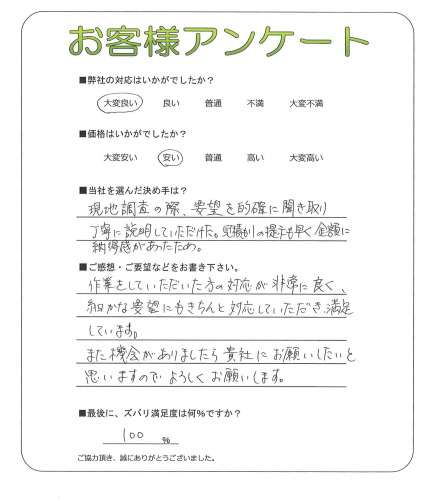 お客様アンケート
■弊社の対応はいかがでしたか?
大変良い 良い 普通 不満 大変不満
■価格はいかがでしたか?
大変安い 安い 普通 高い 大変高い
■当社を選んだ決め手は?
現地調査の際、要望を的確に聞き取り
丁寧に説明していただけた。見積かりの提示も早く金額に
納得感があったため。
■ご感想・ご要望などをお書き下さい。
作業をしていただいた方の対応が非常に良く、
細かな要望にもきちんと対応していただき、満足
しています。
また機会がありましたら貴社にお願いしたいと
思いますのでよろしくお願いします。
■最後に、ズバリ満足度は何%ですか?
100 %
ご協力頂き、誠にありがとうございました。